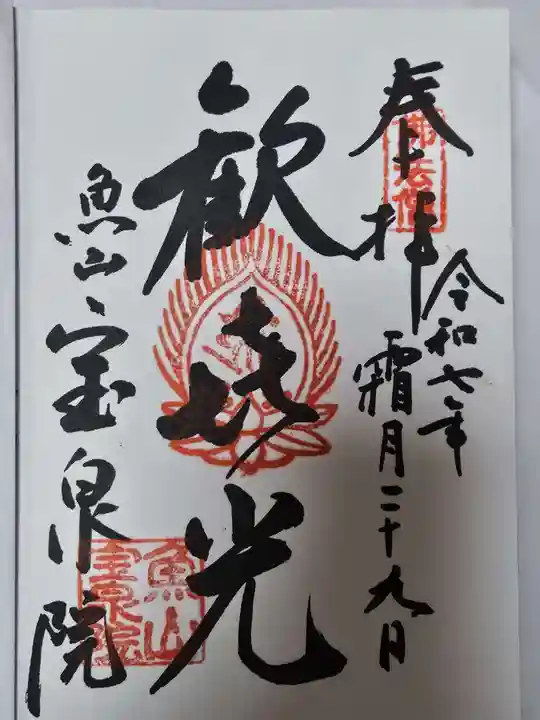 奉拝
令和七年
霜月二十九日
歓喜光
魚山 宝泉院
佛法僧
魚山宝泉院